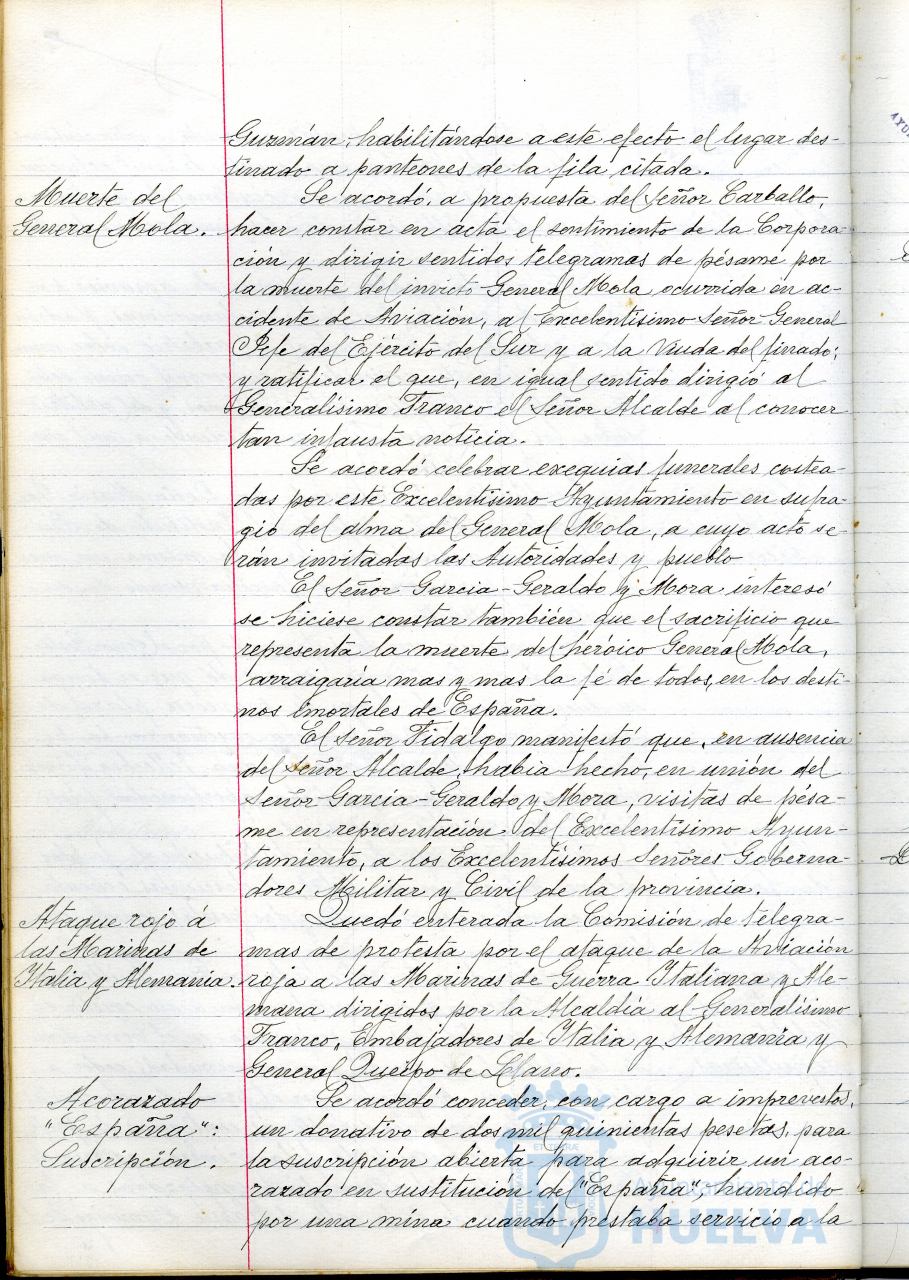 Guzmán, habilitándose a este efecto el lugar des-
tinado a panteones de la fila citada.
Muerte del
General Mola.
Se acordó, a propuesta del Señor Carballo,
hacer constar en acta el sentimiento de la Corpora-
ción y dirigir sentidos telegramas de pésame por
la muerte del invicto General Mola ocurrida en ac-
cidente de Aviación, al Excelentísimo Señor General
Jefe del Ejército del Sur y a la Viuda del finado;
y ratificar el que, en igual sentido dirigió al
Generalísimo Franco el Señor Alcalde al conocer
tan infausta noticia.
Se acordó celebrar exequias funerales costea-
das por este Excelentísimo Ayuntamiento en sufra-
gio del alma del General Mola, a cuyo acto se-
rán invitadas las Autoridades y pueblo
El Señor Garcia-Geraldo y Mora interesó
se hiciese constar también que el sacrificio que
representa la muerte del heróico General Mola,
arraigaría mas y mas la fé de todos, en los desti-
nos imortales de España.
El Señor Fidalgo manifestó que, en ausencia
del Señor Alcalde, habia hecho, en unión del
Señor Garcia-Geraldo y Mora, visitas de pésa-
me en representación del Excelentísimo Ayun-
tamiento, a los Excelentísimos Señores Goberna-
dores Militar y Civil de la provincia.
Ataque rojo á
las Marinas de
Italia y Alemania.
Quedó enterada la Comisión de telegra-
mas de protesta por el ataque de la Aviación
roja a las Marinas de Guerra Italiana y Ale-
mana dirigidos por la Alcaldía al Generalísimo
Franco, Embajadores de Italia y Alemania y
General Queipo de Llano.
Acorazado
"España":
Suscripción.
Se acordó conceder, con cargo a imprevistos,
un donativo de dos mil quinientas pesetas, para
la suscripción abierta para adquirir un aco-
razado en sustitución del "España", hundido
por una mina cuando prestaba servicio a la
Ayuntamiento de
HUELVA